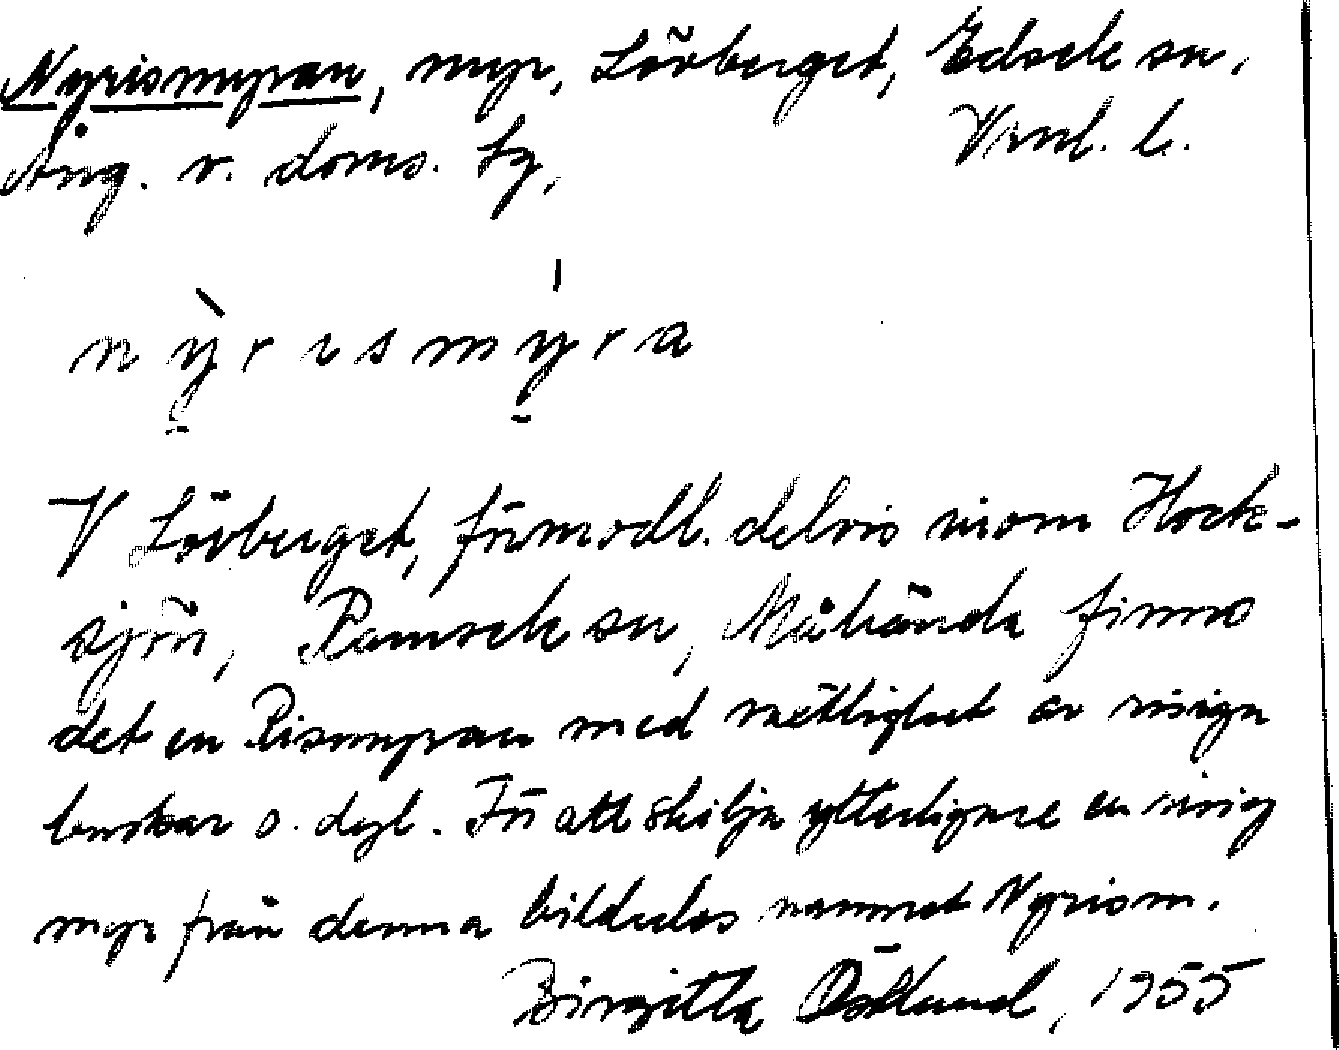 Nyrismyran, myr, Lövberget, Edsele sn,
Ång. v. doms. Lg, Vrnl. l.
nyrismyra
V Lövberget, förmodl. delvis inom Hock-
sjön, Ramsele sn, Måhända finns
det en Rismyran med mättlighet av risiga
buskar o. dyl. För att skilja ytterligare en risig
myr från denna bildades namnet Nyrism.
Birgitta Östlund, 1955